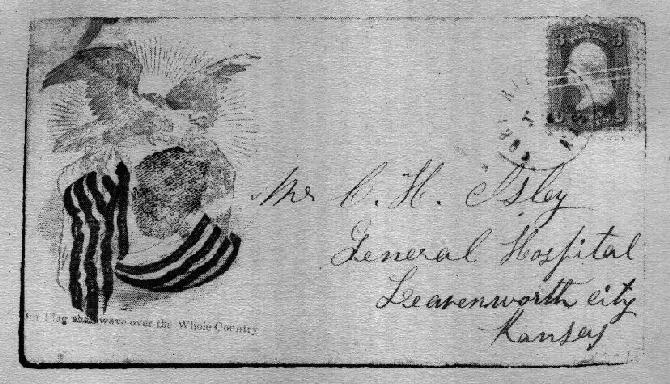 Flag shall wave over the Whole Country
Mr C. H. Isley
General Hospital
Leavenworth city
Kansas